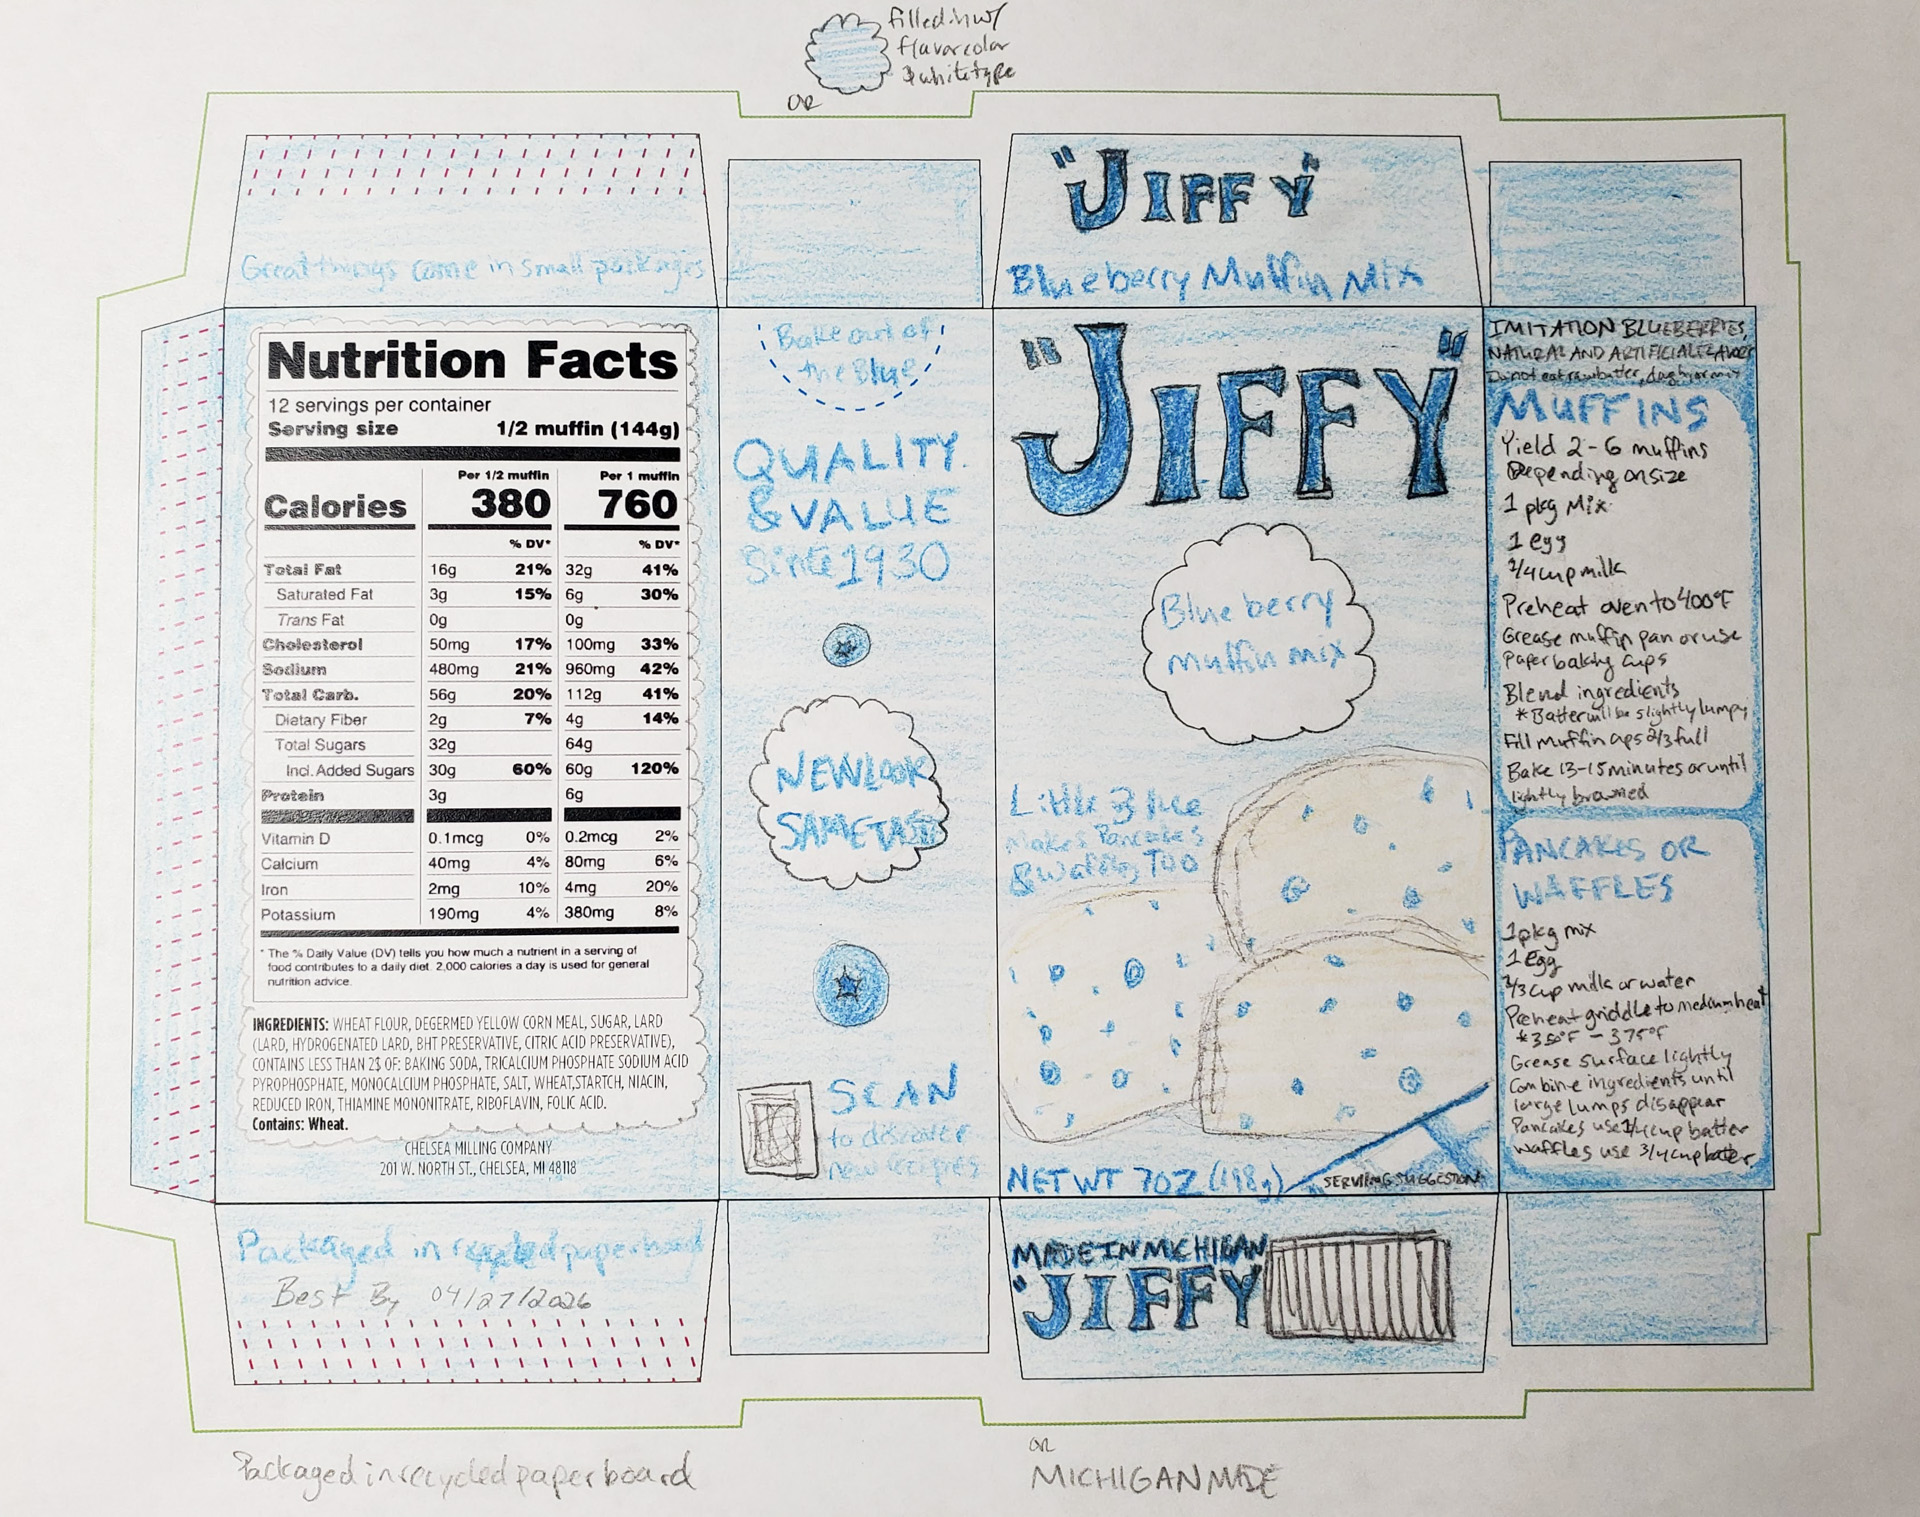 filled in w/
flavor color
& white type
OR
Great things come in small packages
"JIFFY"
Blueberry Muffin Mix
Nutrition Facts
12 servings per container
Serving size 1/2 muffin (144g)
Per 1/2 muffin Per 1 muffin
Calories 380 760
% DV* % DV*
Total Fat 16g 21% 32g 41%
Saturated Fat 3g 15% 6g 30%
Trans Fat 0g 0g
Cholesterol 50mg 17% 100mg 33%
Sodium 480mg 21% 960mg 42%
Total Carb. 56g 20% 112g 41%
Dietary Fiber 2g 7% 4g 14%
Total Sugars 32g 64g
Incl. Added Sugars 30g 60% 60g 120%
Protein 3g 6g
Vitamin D 0.1mcg 0% 0.2mcg 2%
Calcium 40mg 4% 80mg 6%
Iron 2mg 10% 4mg 20%
Potassium 190mg 4% 380mg 8%
* The % Daily Value (DV) tells you how much a nutrient in a serving of
food contributes to a daily diet. 2,000 calories a day is used for general
nutrition advice.
INGREDIENTS: WHEAT FLOUR, DEGERMED YELLOW CORN MEAL, SUGAR, LARD
(LARD, HYDROGENATED LARD, BHT PRESERVATIVE, CITRIC ACID PRESERVATIVE),
CONTAINS LESS THAN 2$ OF: BAKING SODA, TRICALCIUM PHOSPHATE SODIUM ACID
PYROPHOSPHATE, MONOCALCIUM PHOSPHATE, SALT, WHEAT,STARTCH, NIACIN,
REDUCED IRON, THIAMINE MONONITRATE, RIBOFLAVIN, FOLIC ACID.
Contains: Wheat.
CHELSEA MILLING COMPANY
201 W. NORTH ST., CHELSEA, MI 48118
Bake out of
the Blue
QUALITY
& VALUE
Since 1930
NEW LOOK
SAME TASTE
SCAN
to discover
new recipes
"JIFFY"
Blueberry
muffin mix
Little Blue
Makes Pancakes
& Waffles Too
NET WT 7OZ (198g)
SERVING SUGGESTION
IMITATION BLUEBERRIES,
NATURAL AND ARTIFICIAL FLAVORS
Do not eat raw batter, dough or mix
MUFFINS
Yield 2-6 muffins
Depending on size
1 pkg Mix
1 egg
1/4 cup milk
Preheat oven to 400°F
Grease muffin pan or use
paper baking cups
Blend ingredients
*Batter will be slightly lumpy
Fill muffin cups 2/3 full
Bake 13-15 minutes or until
lightly browned
PANCAKES OR
WAFFLES
1 pkg mix
1 egg
2/3 cup milk or water
Preheat griddle to medium heat
*350°F - 375°F
Grease surface lightly
Combine ingredients until
large lumps disappear
Pancakes use 1/4 cup batter
waffles use 3/4 cup batter
Packaged in recycled paperboard
Best By 04/27/2026
MADE IN MICHIGAN
"JIFFY
Packaged in recycled paperboard
OR
MICHIGAN MADE